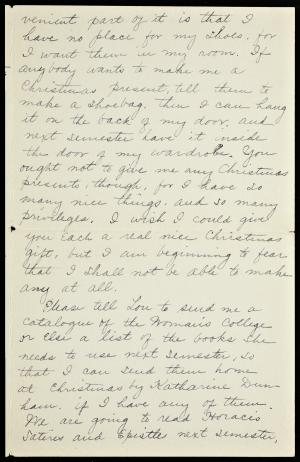 venient part of it is that I
have no place for my shoes, for
I want them in my room. If
anybody wants to make me a
Christmas present, tell them to
make a shoebag. Then I can hang
it on the back of my door, and
next semester have it inside
the door of my wardrobe. You
ought not to give me any Christmas
presents, though, for I have so
many nice things, and so many
privileges. I wish I could give
you each a real nice Christmas
gift, but I am beginning to fear
that I shall not be able to make
any at all.
Please tell Lou to send me a
catalogue of the Woman's College
or else a list of the books she
needs to use next semester, so
that I can send them home
at Christmas by Katharine Dun-
ham. if I have any of them.
We are going to read Horacis
Satires and Epistles next semester,